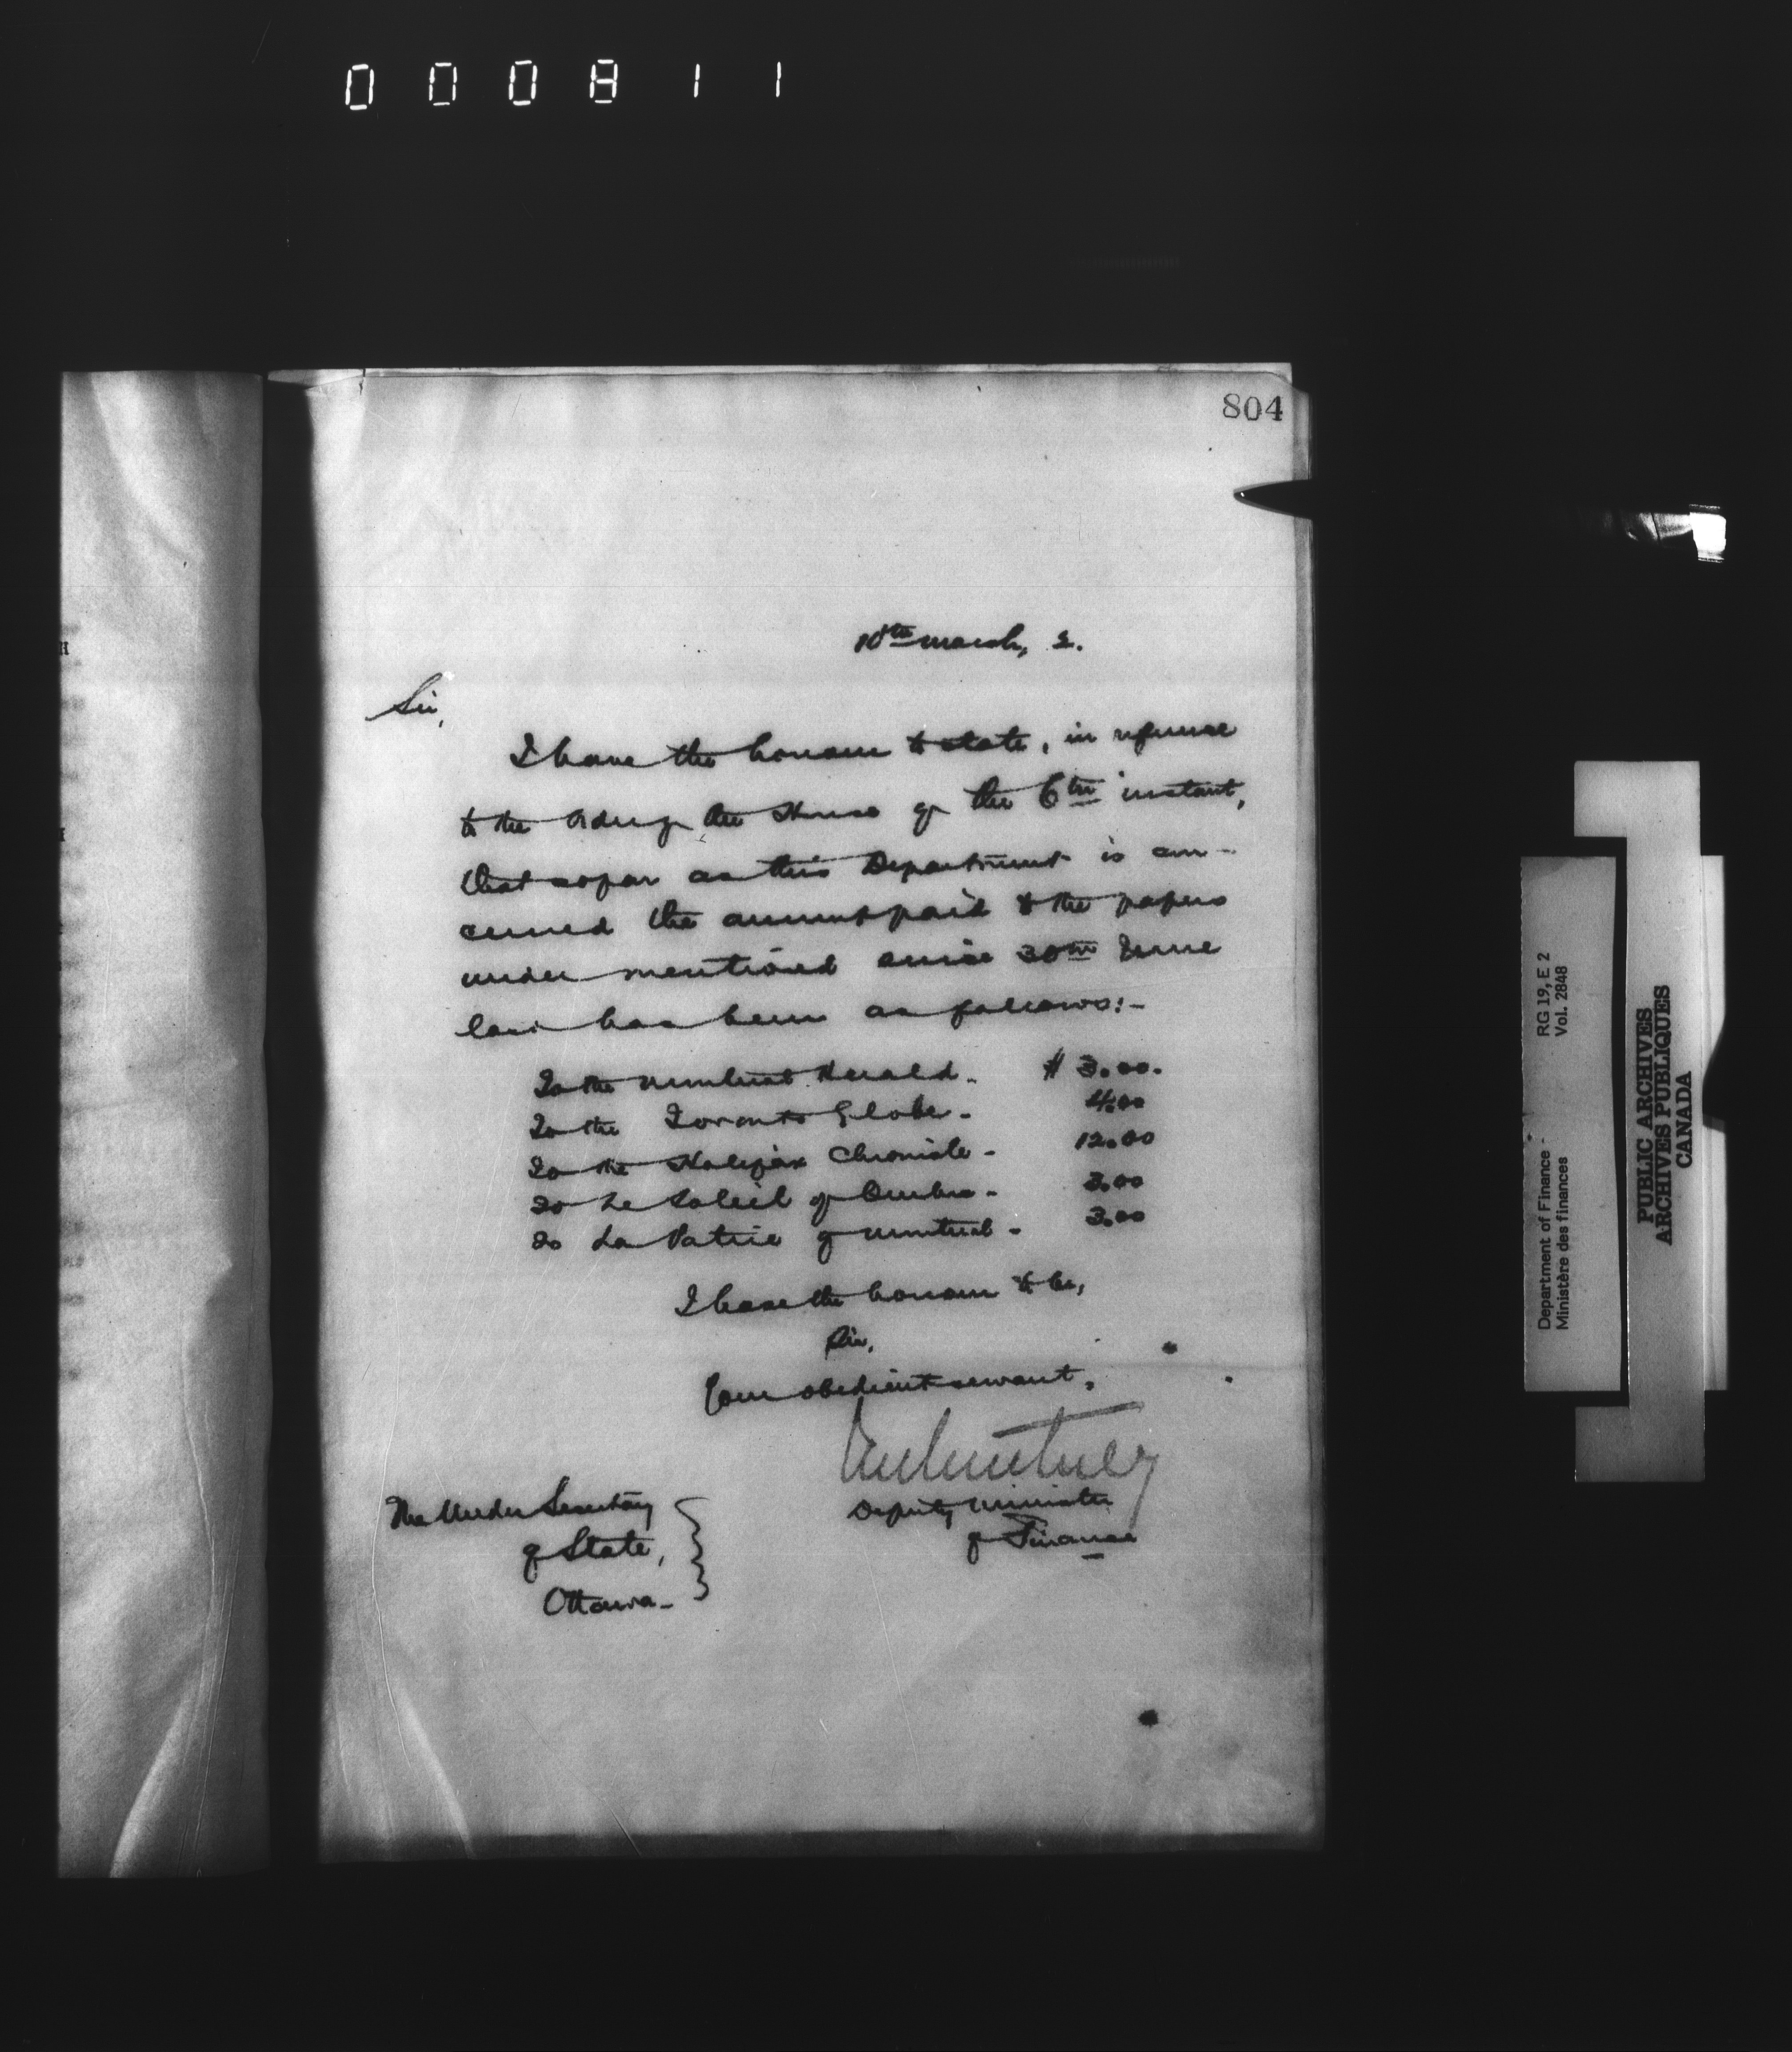 000811
804
10th March, 2.
Sir,
I have the honour to state, in reference
to the Order of the House of the 6th instant,
that so far as this Department is con-
cerned the amount paid to the papers
under mentioned since 30th June
last has been as follows:-
To the Montreal Herald. $ 3.00.
To the Toronto Globe. 4.00
To the Halifax Chronicle. 12.00
To Le Soleil of Quebec. 3.00
To La Patrie of Montreal. 3.00
I have the honour to be,
Sir,
Your obedient servant,
Deputy Minister
of Finance
The Under Secretary
of State,
Ottawa.
Department of Finance - RG 19, E 2
Ministère des finances Vol. 2848
PUBLIC ARCHIVES
ARCHIVES PUBLIQUES
CANADA